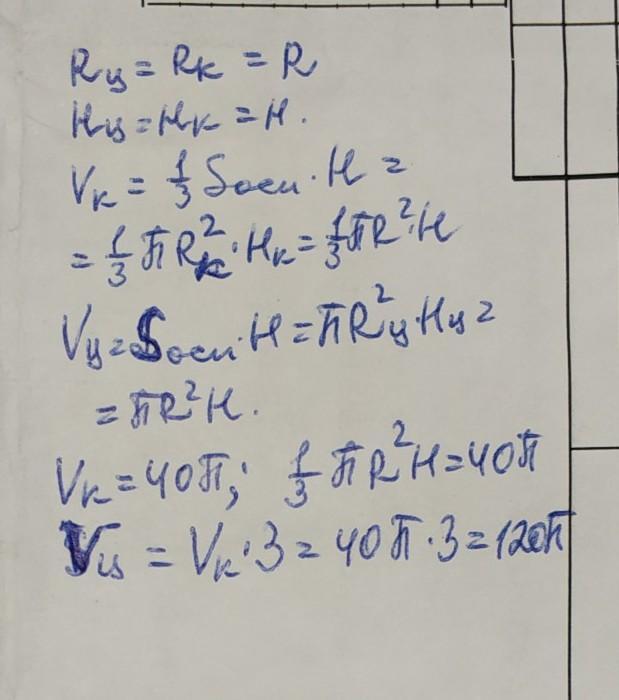 Rц = Rк = R
Hц = Hк = H.
Vк = 1/3 Sосн · H =
= 1/3 πRк² · Hк = 1/3 πR² · H
Vц = Sосн · H = πR²ц · Hц =
= πR²H.
Vк = 40π; 1/3 πR²H = 40π
Vц = Vк · 3 = 40π · 3 = 120π